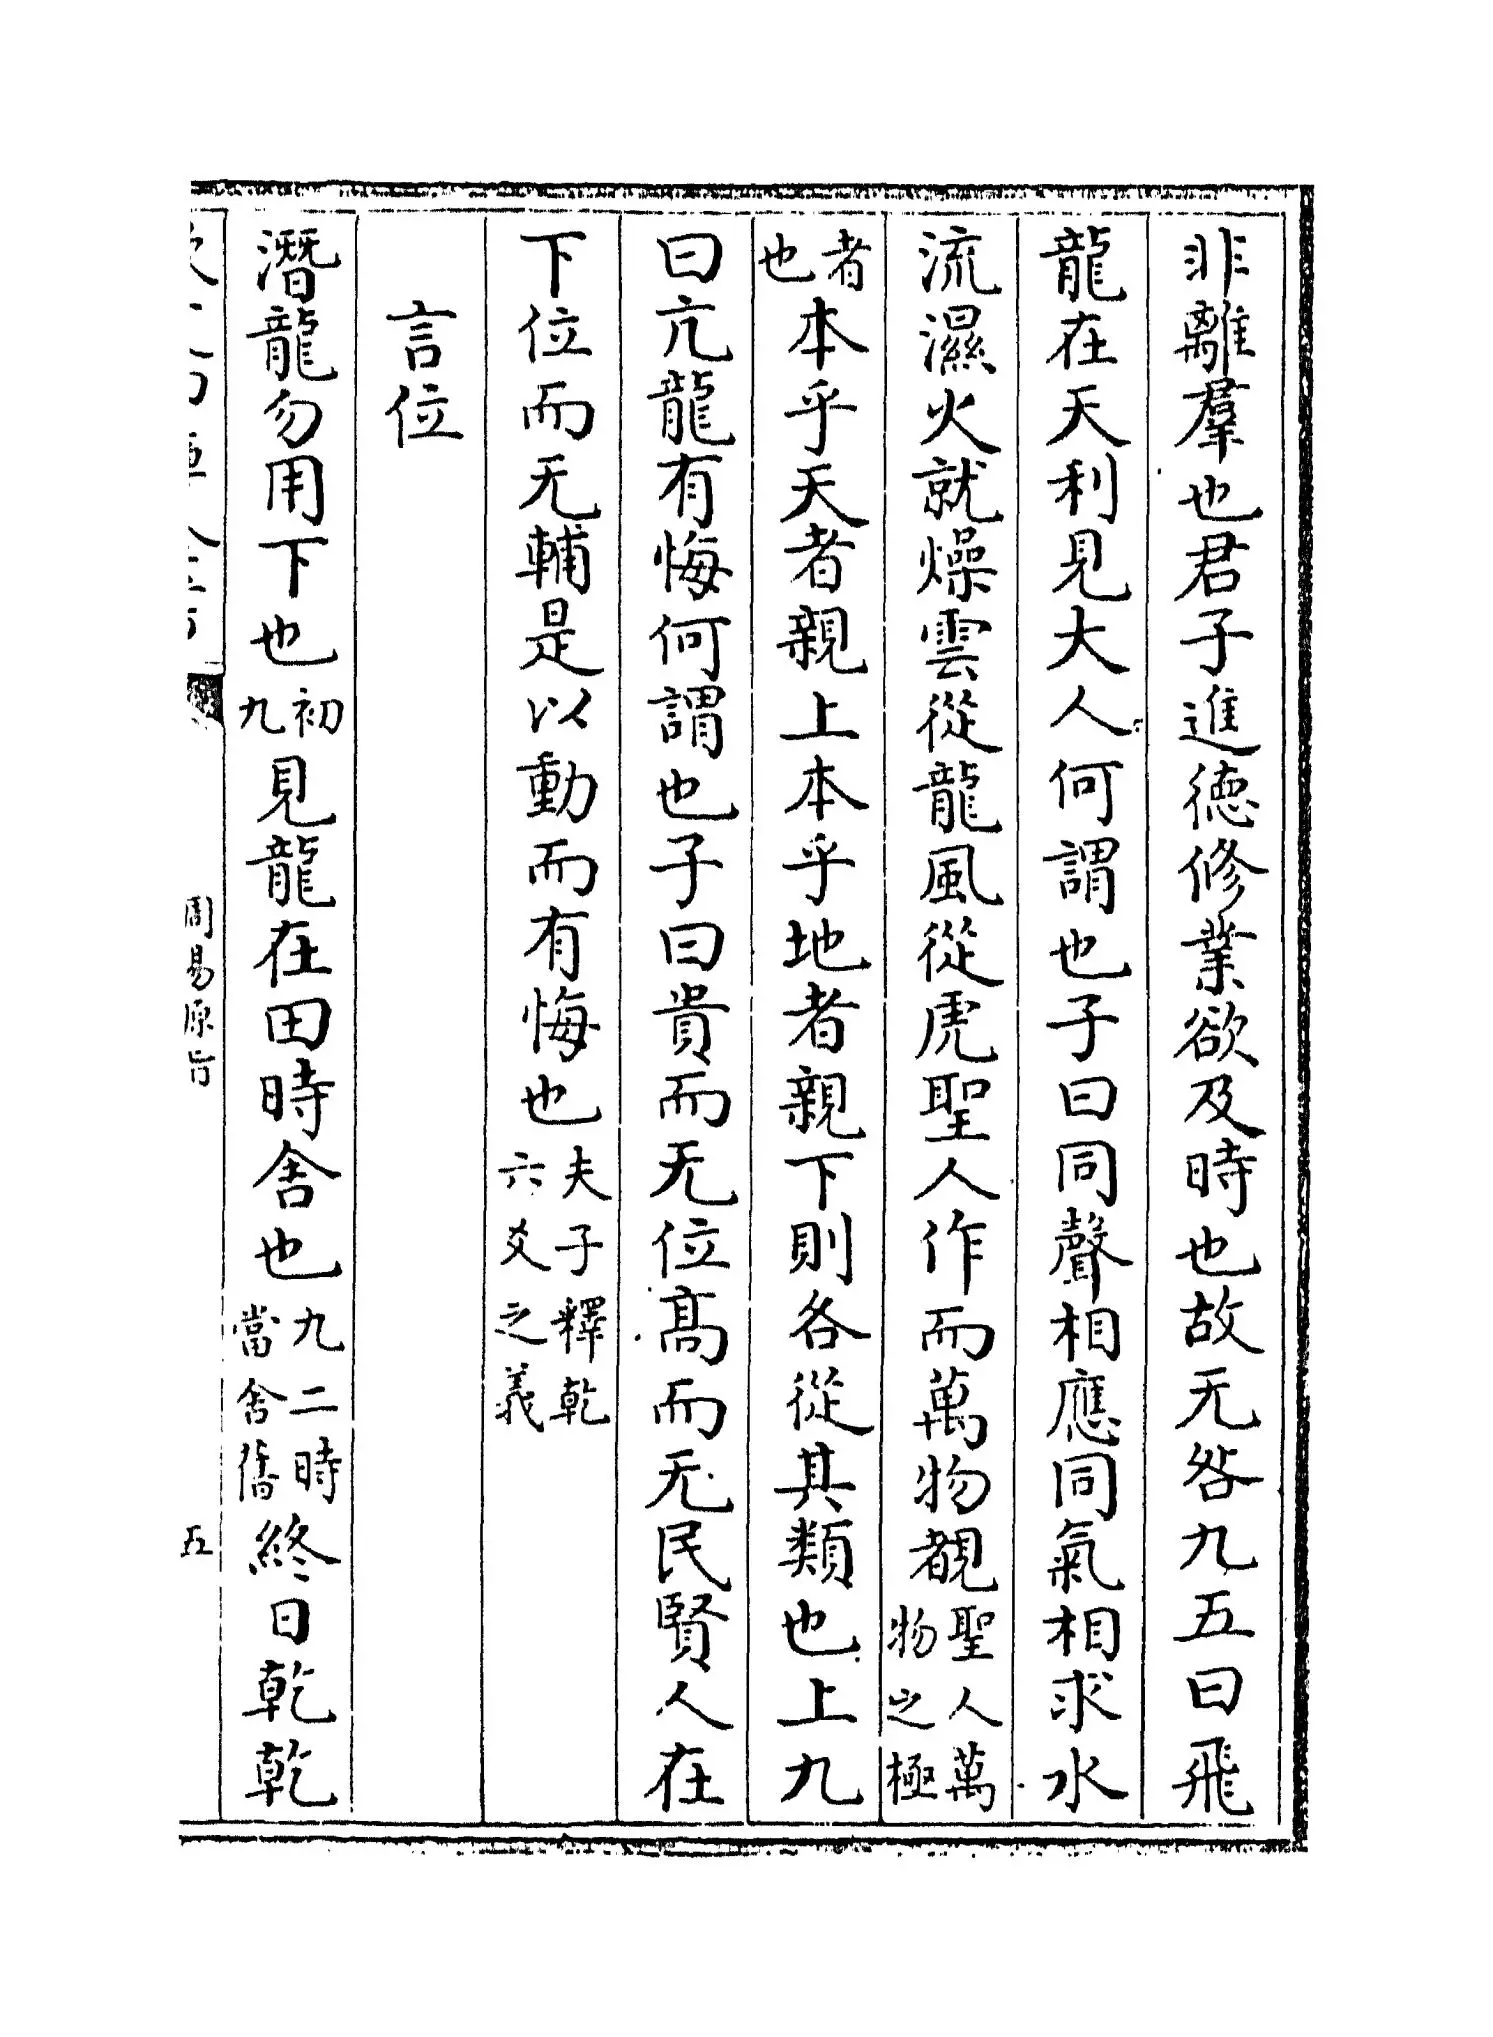 非離羣也君子進德修業欲及時也故无咎九五曰飛
龍在天利見大人何謂也子曰同聲相應同氣相求水
流濕火就燥雲從龍風從虎聖人作而萬物覩聖人萬物之極
者也本乎天者親上本乎地者親下則各從其類也上九
曰亢龍有悔何謂也子曰貴而无位髙而无民賢人在
下位而无輔是以動而有悔也夫子釋乾六爻之義
言位
潛龍勿用下也初九見龍在田時舎也九二時當舎舊終日乾乾
周易原旨
五